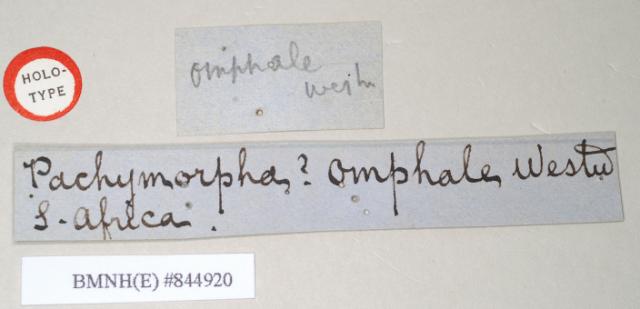 HOLO-
TYPE
omphale
westw
Pachymorpha? omphale, Westw
S. Africa.
BMNH(E) #844920